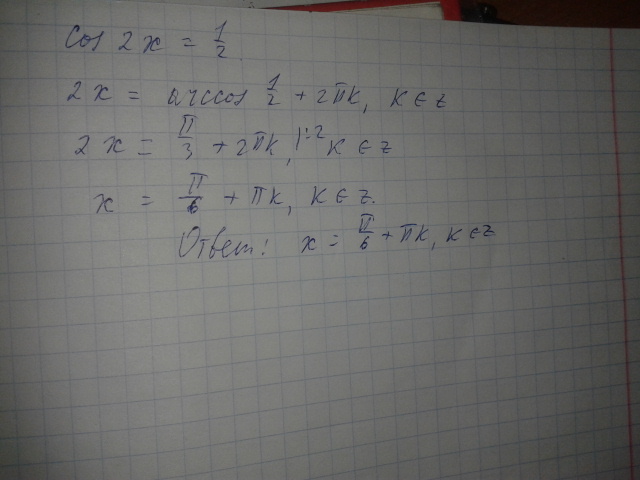 cos 2x = 1/2
2x = arccos 1/2 + 2πk, k ∈ z
2x = π/3 + 2πk, |:2 k ∈ z
x = π/6 + πk, k ∈ z.
Ответ: x = π/6 + πk, k ∈ z